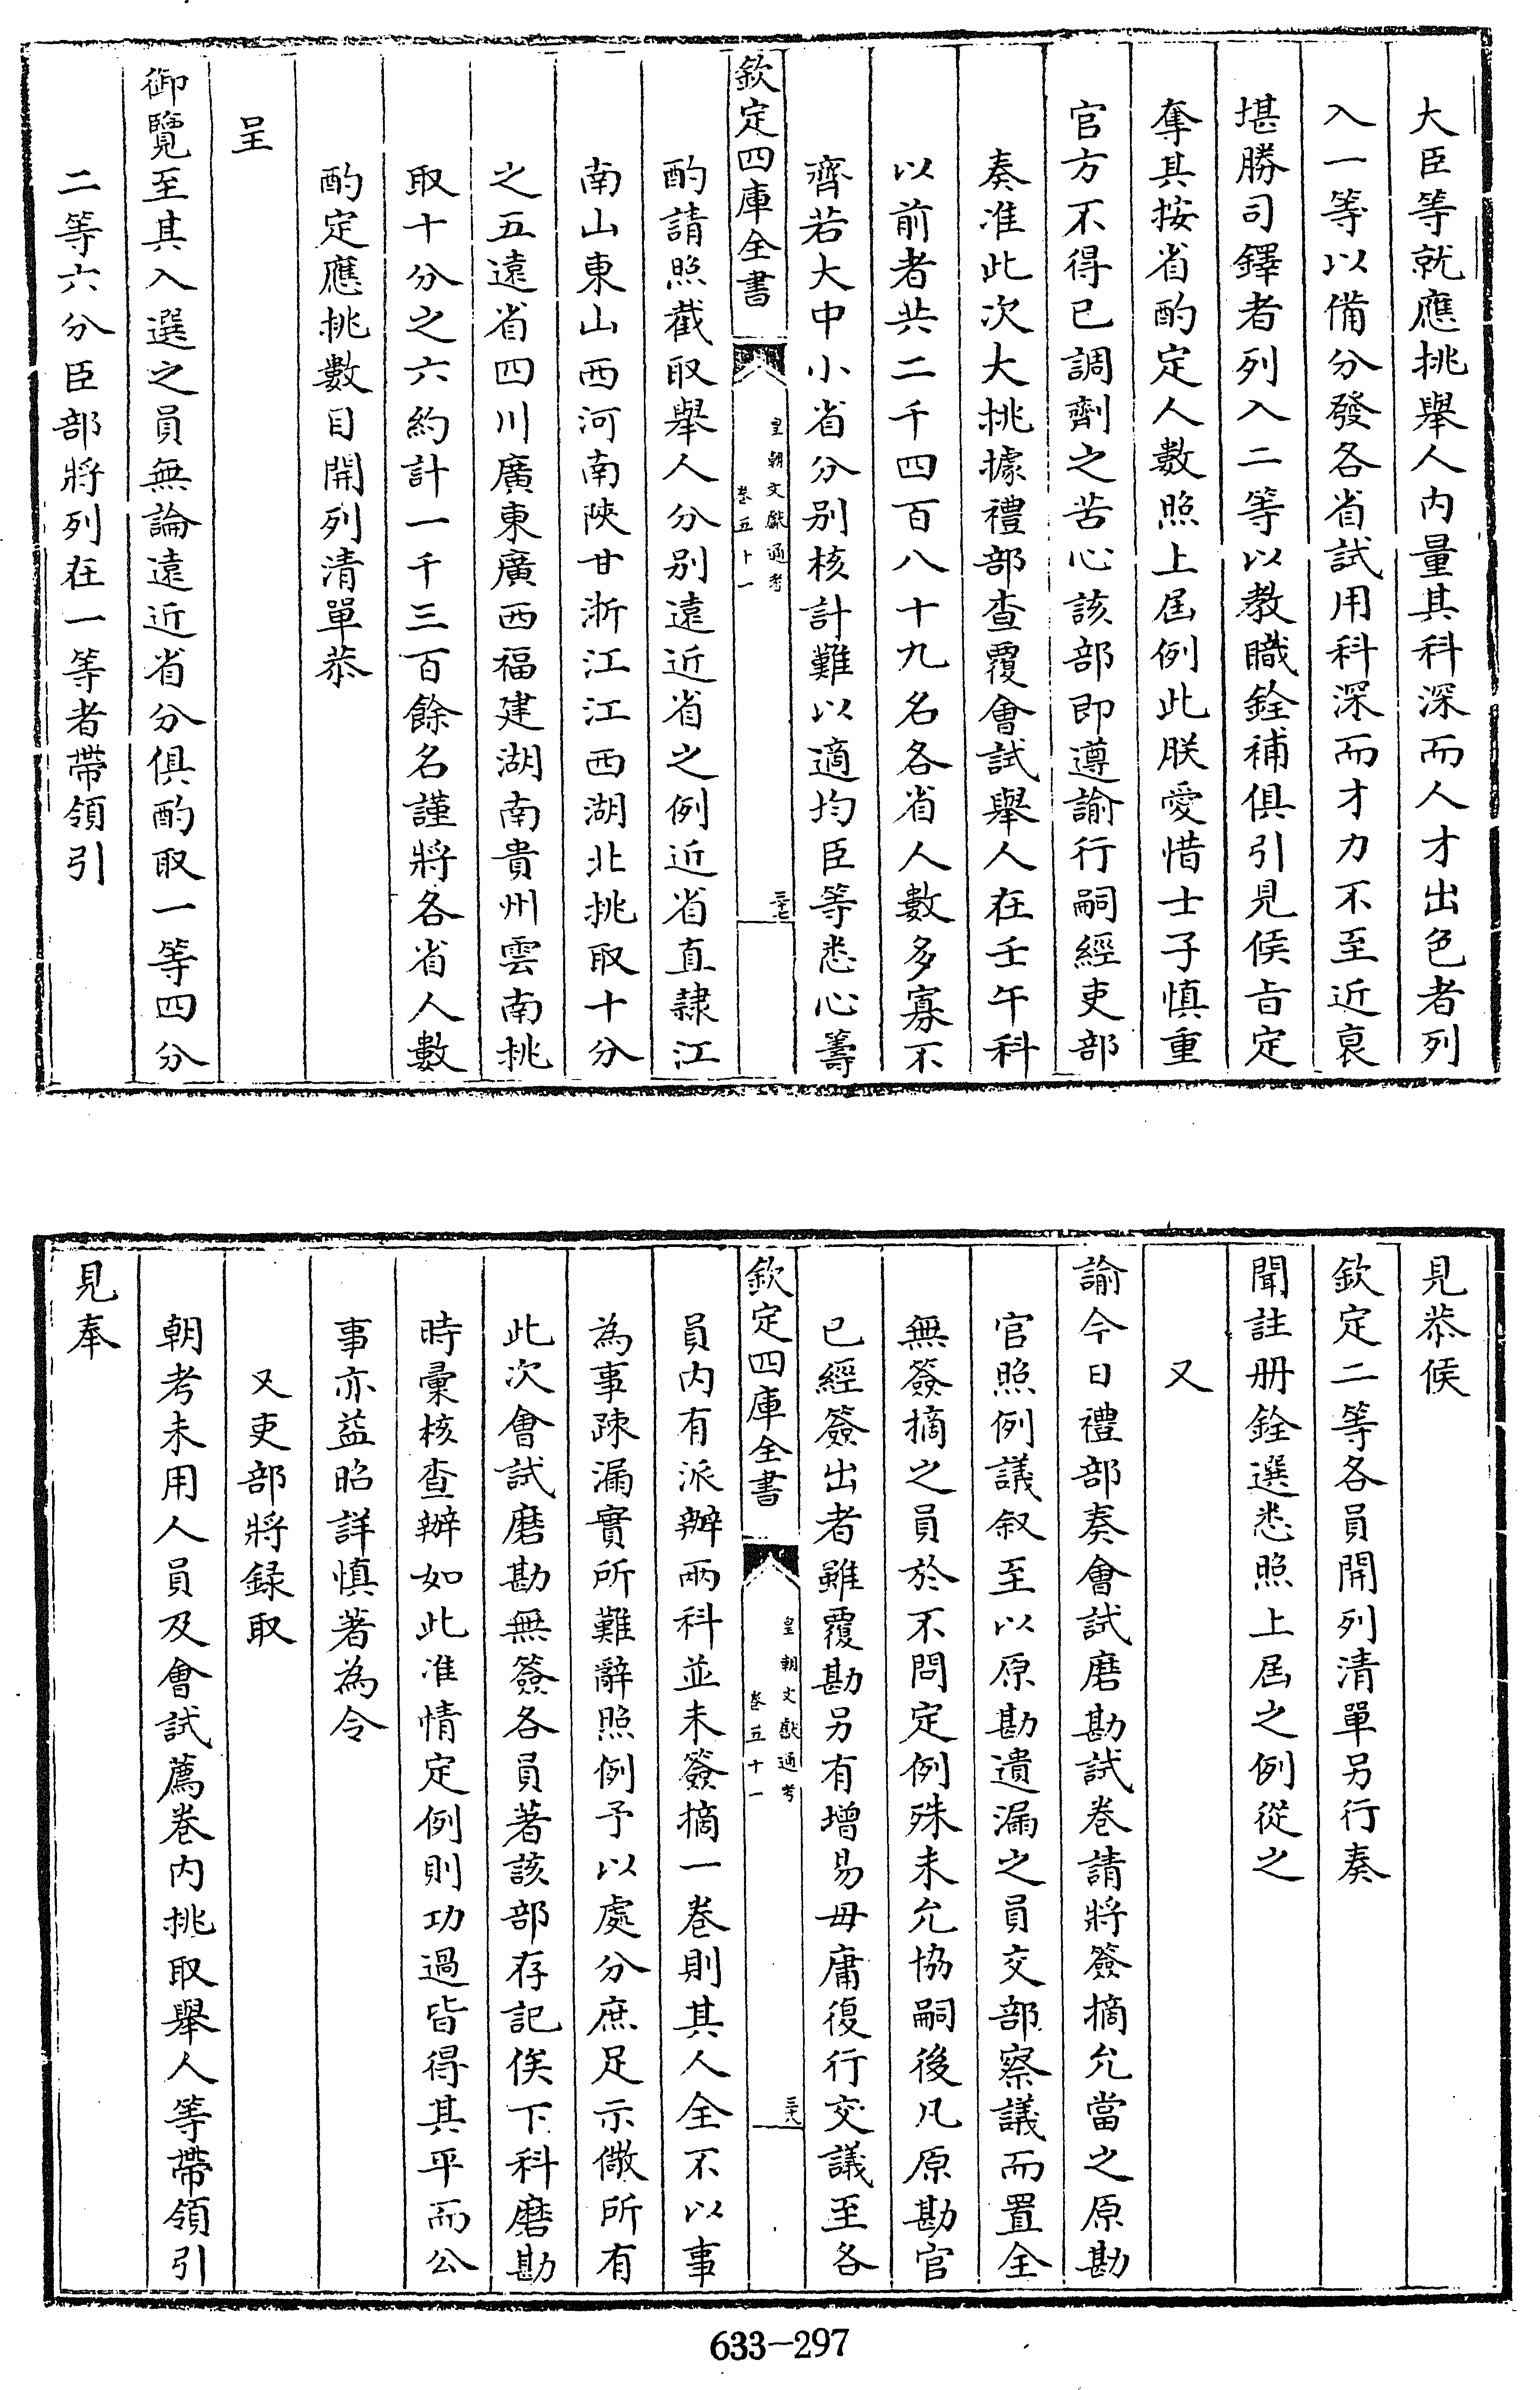 大臣等就應挑舉人内量其科深而人才出色者列
入一等以備分發各省試用科深而才力不至近衰
堪勝司鐸者列入二等以教職銓補俱引見候㫖定
奪其按省酌定人數照上屆例此朕愛惜士子慎重
官方不得已調劑之苦心該部即遵諭行嗣經吏部
奏准此次大挑據禮部查覆會試舉人在壬午科
以前者共二千四百八十九名各省人數多寡不
齊若大中小省分别核計難以適均臣等悉心籌
欽定四庫全書
皇朝文獻通考
卷五十一
三十七
酌請照截取舉人分别遠近省之例近省直隷江
南山東山西河南陜甘浙江江西湖北挑取十分
之五遠省四川廣東廣西福建湖南貴州雲南挑
取十分之六約計一千三百餘名謹將各省人數
酌定應挑數目開列清單恭
呈
御覽至其入選之員無論遠近省分俱酌取一等四分
二等六分臣部將列在一等者帶領引
見恭候
欽定二等各員開列清單另行奏
聞註册銓選悉照上屆之例從之
又
諭今日禮部奏會試磨勘試卷請將簽摘允當之原勘
官照例議叙至以原勘遺漏之員交部察議而置全
無簽摘之員於不問定例殊未允協嗣後凡原勘官
已經簽出者雖覆勘另有增易毋庸復行交議至各
欽定四庫全書
皇朝文獻通考
卷五十一
三十八
員内有派辦兩科並未簽摘一卷則其人全不以事
為事疎漏實所難辭照例予以處分庶足示儆所有
此次會試磨勘無簽各員著該部存記俟下科磨勘
時彙核查辦如此准情定例則功過皆得其平而公
事亦益昭詳慎著為令
又吏部將録取
朝考未用人員及會試薦卷内挑取舉人等帶領引
見奉
633-297